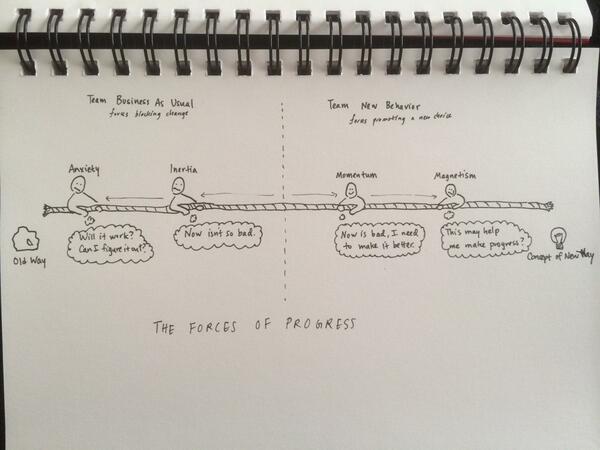 Team Business As Usual
forces blocking change
Team New Behavior
forces promoting a new choice
Anxiety
Inertia
Momentum
Magnetism
Will it work?
Can I figure it out?
Now isnt so bad.
Now is bad, I need
to make it better.
This may help
me make progress?
Old Way
Concept of New Way
THE FORCES OF PROGRESS